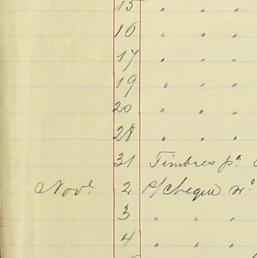 15 " " "
16 " " "
17 " " "
19 " " "
20 " " "
28 " " "
31 Timbres pª
Novᵉ 2 p/cheque nº
3 " " "
4 " " "